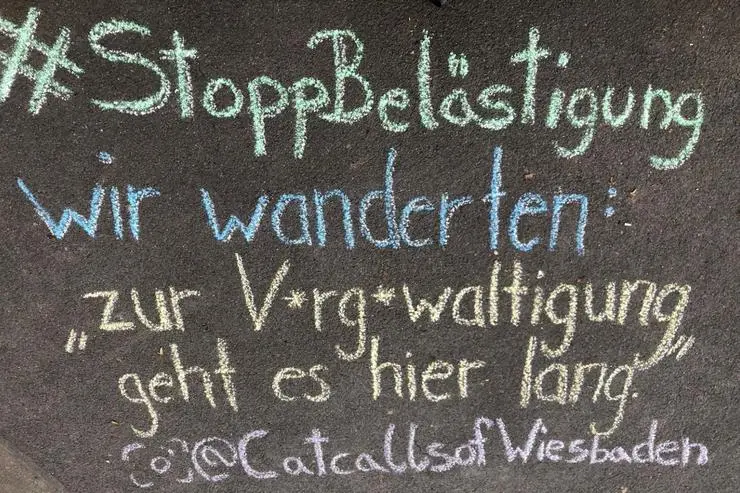 #StoppBelästigung
wir wanderten:
„zur V*rg*waltigung
geht es hier lang.”
@CatcallsofWiesbaden